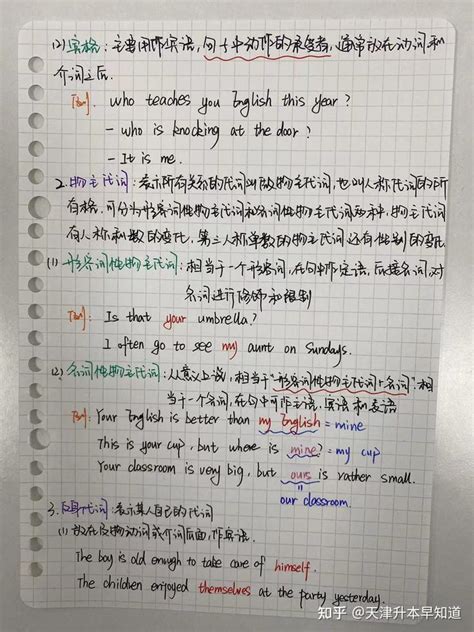 (2) 宾格：主要用作宾语，句子中动作的承受者，通常放在动词和
介词之后.
[例]. who teaches you English this year?
- who is knocking at the door?
- It is me.
2. 物主代词：表示所有关系的代词叫做物主代词，也叫人称代词的所
有格.可分为形容词性物主代词和名词性物主代词两种，物主代词
有人称和数的变化. 第三人称单数的物主代词还有性别的变化.
(1) 形容词性物主代词：相当于一个形容词，在句中作定语，后接名词，对
名词进行修饰和限制
[例]: Is that your umbrella?
I often go to see my aunt on Sundays.
(2). 名词性物主代词：从意义上说，相当于"形容词性物主代词+名词".相
当于一个名词，在句中可作主语，宾语和表语
[例]: Your English is better than my English = mine
This is your cup, but where is mine? = my cup
Your classroom is very big, but ours is rather small.
our classroom.
3. 反身代词：表示某人自己的代词
(1) 放在及物动词或介词后面，作宾语.
The boy is old enough to take care of himself.
The children enjoyed themselves at the party yesterday.
知乎 @天津升本早知道